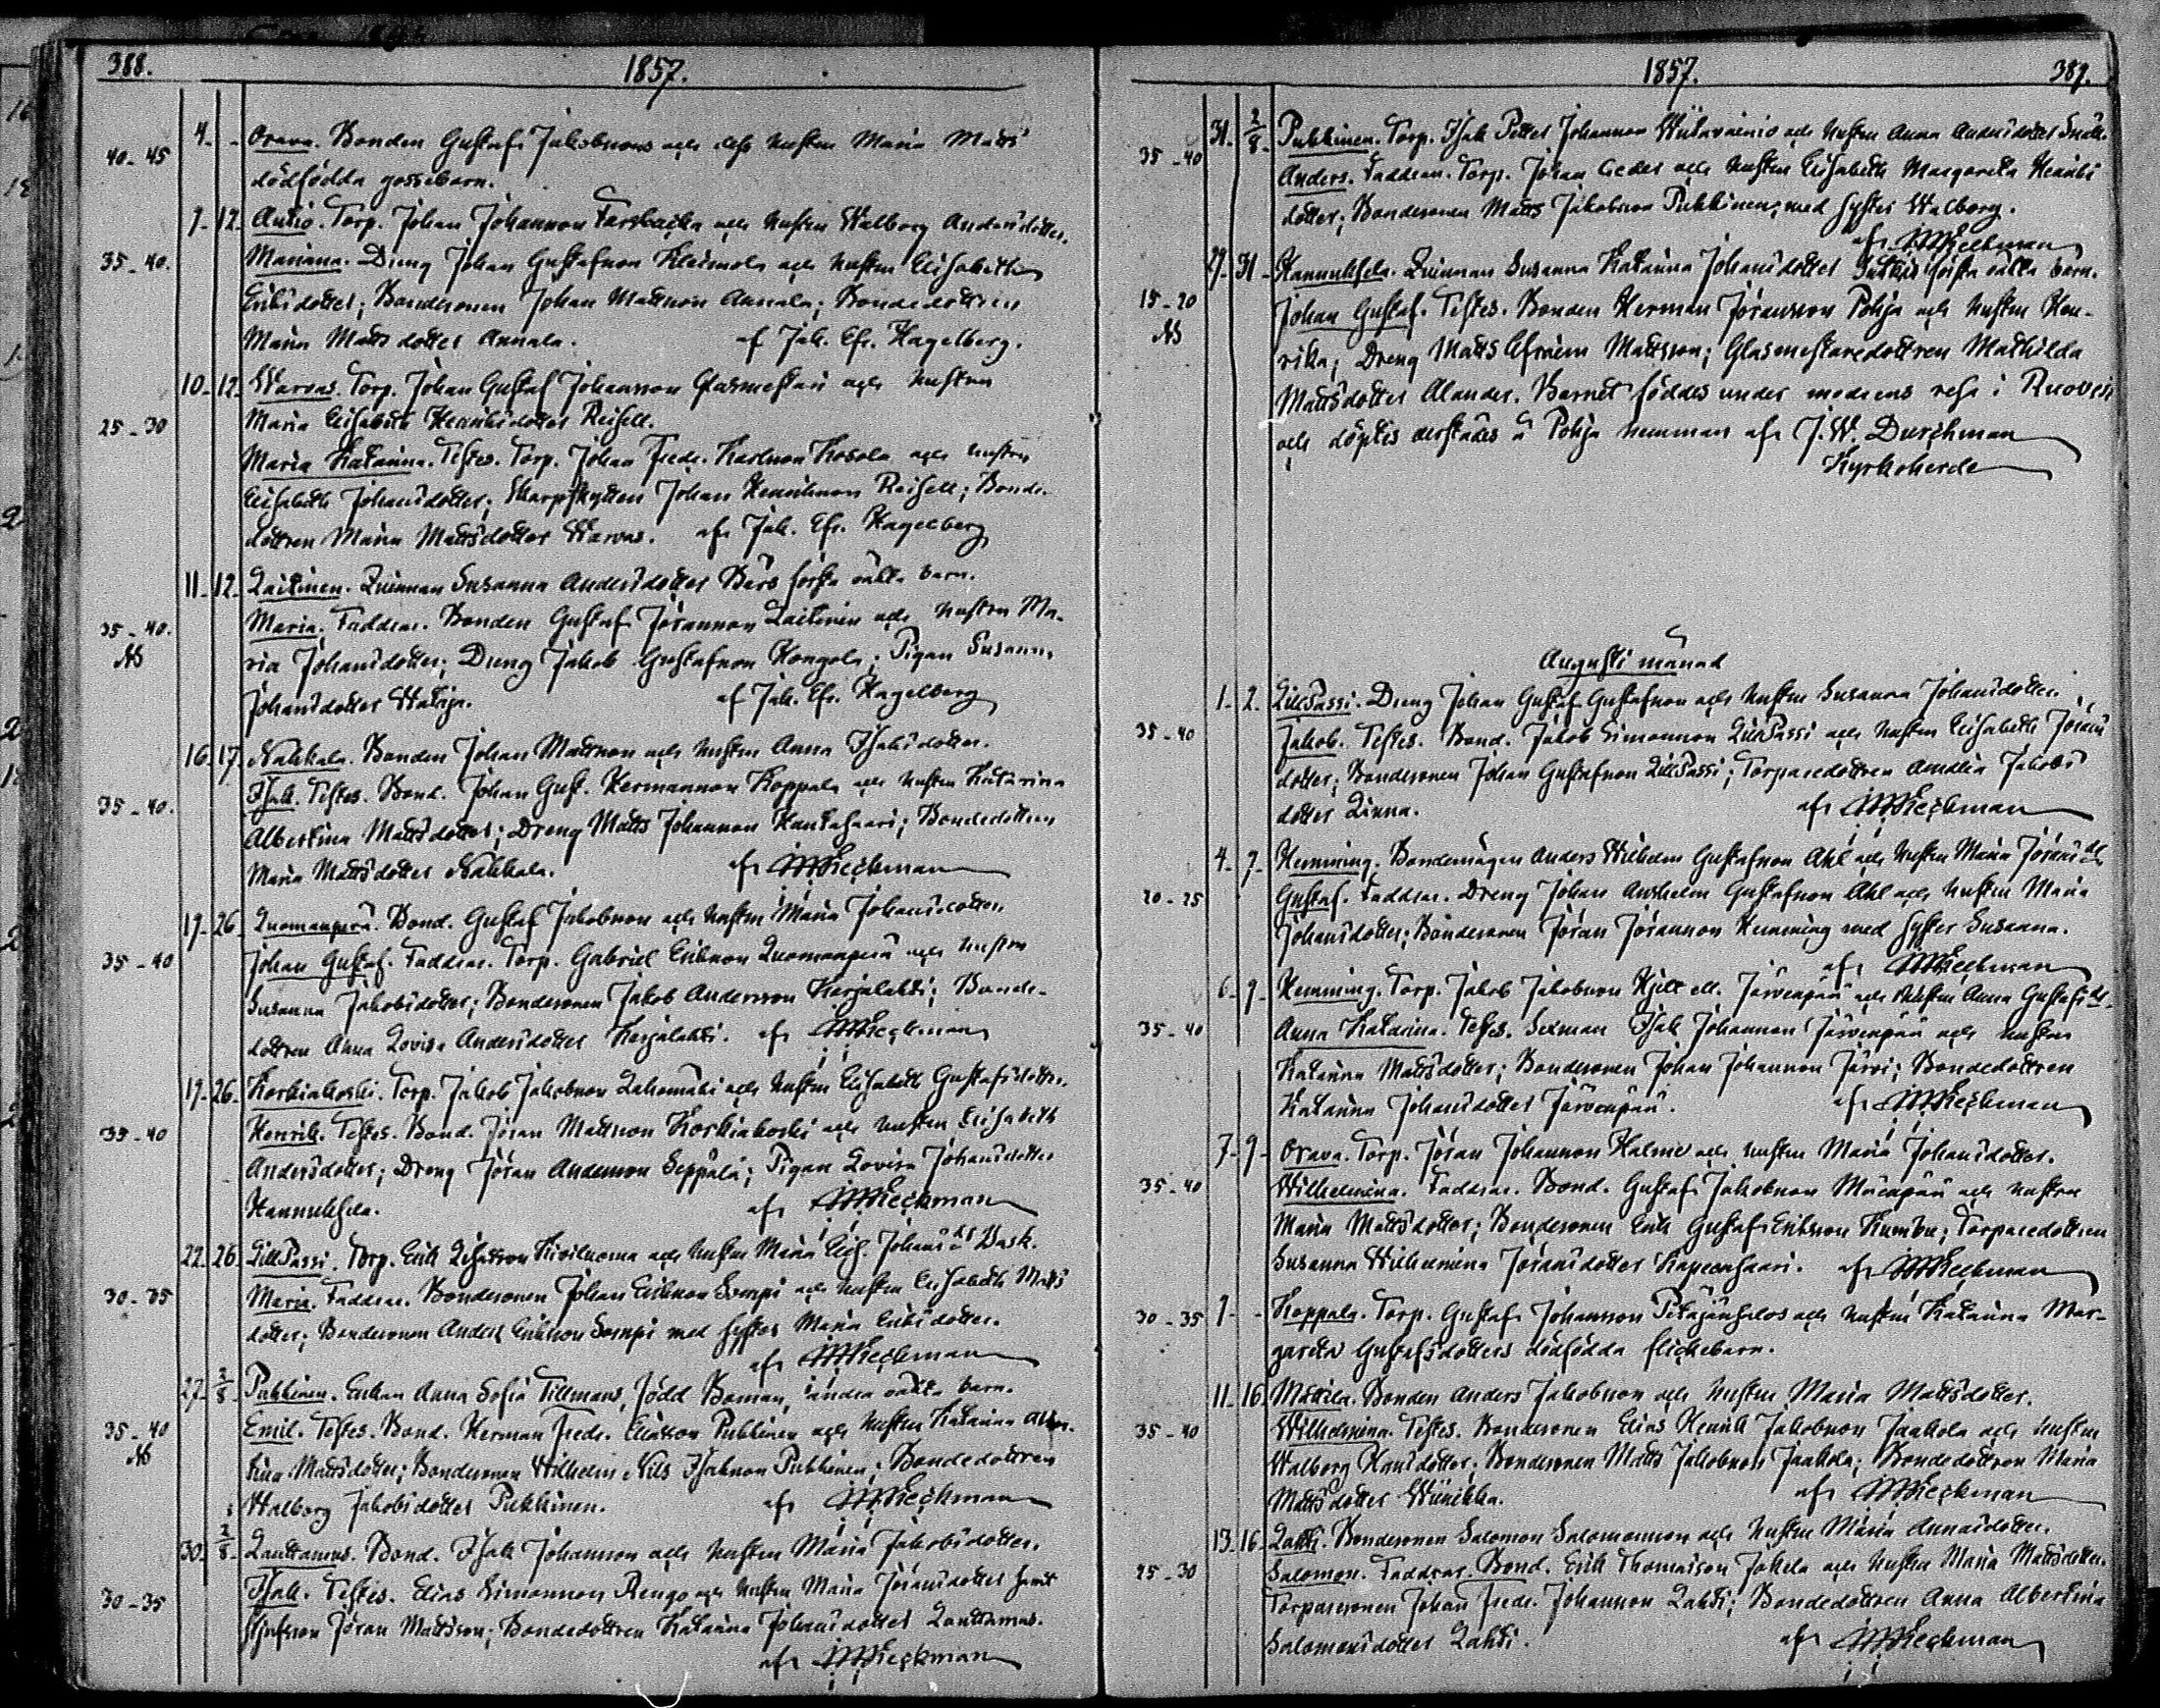 388.
1857.
4. - Orava. Bonden Gustaf Jakobsons och dess hustru Maria Matts
40-45
dödfödda gossebarn.
9. 12. Autio. Torp. Johan Johansson och hustru Walborg Andersdotter.
35-40. Mariana. Dreng Johan Gustafsson och hustru Elisabeth
Eriksdotter; Bondesonen Johan Mattsson Annala; Bondedottren
Maria Matts dotter Annala. af Joh. Efr. Hagelberg.
10. 12. Warvas. Torp. Johan Gustaf Johansson Glasmestari och hustru
25-30 Maria Elisabeth Henriksdotter Reisell.
Maria Katarina. Testes. Torp. Johan Fredr. Karlsson Kosola och hustru
Elisabeth Johansdotter; Skarpskytten Johan Henriksson Reisell; Bonde-
dottren Maria Mattsdotter Warvas. af Joh. Efr. Hagelberg
11. 12. Laitinen. Quinnan Susanna Andersdotter Bärs första oäkta barn.
35-40. Maria. Faddrar. Bonden Gustaf Jöransson Laitinen och hustru Ma-
ria Johansdotter; Dreng Jakob Gustafsson Kongola; Pigan Susanna
Johansdotter Hatäja. af Joh. Efr. Hagelberg
16. 17. Nahkala. Bonden Johan Mattsson och hustru Anna Isaksdotter.
35-40. Isak. Testes. Bond. Johan Gust. Hermansson Koppala och hustru Katarina
Albertina Mattsdotter; Dreng Matts Johansson Kantasaari; Bondedottren
Maria Mattsdotter Nahkala. af Heckman
19. 26. Luomanperä. Bond. Gustaf Jakobsson och hustru Maria Johansdotter.
35-40 Johan Gustaf. Faddrar. Torp. Gabriel Eriksson Luomanperä och hustru
Susanna Jakobsdotter; Bondesonen Jakob Andersson Karjalahti; Bonde-
dottren Anna Lovisa Andersdotter Karjalahti. af Heckman
19. 26. Korkiakoski. Torp. Jakob Jakobsson Lahomäki och hustru Elisabeth Gustafsdotter.
35-40 Henrik. Testes. Bond. Jöran Mattsson Korkiakoski och hustru Elisabeth
Andersdotter; Dreng Jöran Andersson Seppälä; Pigan Lovisa Johansdotter
Hannuksela. af Heckman
22. 26. LillPassi. Torp. Erik Kiviluoma och hustru Maria Elis. Johansdr Bask.
30-35 Maria. Faddrar. Bondesonen Johan Eriksson Sompi och hustru Elisabeth Matts
dotter; Bondesonen Anders Eriksson Sompi med syster Maria Eriksdotter.
af Heckman
27. 2/8 Pukkinen. Enkan Anna Sofia Tillmans, född Boman, andra oäkta barn.
35-40 Emil. Testes. Bond. Herman Fredr. Eliasson Pukkinen och hustru Katarina Alber-
tina Mattsdotter; Bondesonen Wilhelm Nils Isaksson Pukkinen; Bondedottren
Walborg Jakobsdotter Pukkinen. af Heckman
30. 2/8 Lauttamus. Bond. Isak Johansson och hustru Maria Jakobsdotter.
30-35 Isak. Testes. Elias Simonsson Rengo och hustru Maria Jöransdotter samt
Jöran Mattsson; Bondedottren Katarina Johansdotter Lauttamus.
af Heckman
1857.
389.
31. 2/8 Pukkinen. Torp. Isak Petter Johansson Wiitavainio och hustru Anna Andersdotter
35-40 Anders. Faddrar. Torp. Johan Ceder och hustru Elisabeth Margareta Henriks
dotter; Bondesonen Matts Jakobsson Pukkinen med syster Walborg.
af Heckman
29. 31. Hannuksela. Quinnan Susanna Katarina Johansdotter första oäkta barn.
15-20 Johan Gustaf. Testes. Bonden Herman Jöransson Pohja och hustru Hen-
rika; Dreng Matts Efraim Mattsson; Glasmestaredottren Mathilda
Mattsdotter Alander. Barnet föddes under modrens resa i Ruovesi
och döptes derstädes å Pohja hemman af J. W. Durchman
Kyrkoherde
Augusti månad
1. 2. LillPassi. Dreng Johan Gustaf Gustafsson och hustru Susanna Johansdotter.
35-40 Jakob. Testes. Bond. Jakob Simonsson LillPassi och hustru Elisabeth Jörans
dotter; Bondesonen Johan Gustafsson LillPassi; Torparedottren Amalia Jakobs
dotter Linna. af Heckman
4. 9. Hemming. Bondemågen Anders Wilhelm Gustafsson Ahl och hustru Maria Jöransdr
20-25 Gustaf. Faddrar. Dreng Johan Anshelm Gustafsson Ahl och hustru Maria
Johansdotter; Bondesonen Jöran Jöransson Hemming med syster Susanna.
af Heckman
6. 9. Hemming. Torp. Jakob Jakobsson Hjelt ell. Järvenpää och hustru Anna Gustafsdr
35-40 Anna Katarina. Testes. Sexman Isak Johansson Järvenpää och hustru
Katarina Mattsdotter; Bondesonen Johan Johansson Järvi; Bondedottren
Katarina Johansdotter Järvenpää. af Heckman
7. 9. Orava. Torp. Jöran Johansson Halme och hustru Maria Johansdotter.
35-40 Wilhelmina. Faddrar. Bond. Gustaf Jakobsson Mäenpää och hustru
Maria Mattsdotter; Bondesonen Erik Gustaf Eriksson Humbu; Torparedottren
Susanna Wilhelmina Jöransdotter Kapeensaari. af Heckman
30-35 9. - Koppala. Torp. Gustaf Johansson Petäjänsalos och hustru Katarina Mar-
gareta Gustafsdotters dödfödda flickebarn.
11. 16. Mattila. Bonden Anders Jakobsson och hustru Maria Mattsdotter.
35-40 Wilhelmina. Testes. Bondesonen Elias Henrik Jakobsson Jaakola och hustru
Walborg Hansdotter; Bondesonen Matts Jakobsson Jaakola; Bondedottren Maria
Mattsdotter Wiinikka. af Heckman
13. 16. Lahti. Bondesonen Salomon Salomonsson och hustru Maria Annasdotter.
25-30 Salomon. Faddrar. Bond. Erik Thomasson Jokela och hustru Maria Mattsdotter.
Torparesonen Johan Fredr. Johansson Lahti; Bondedottren Anna Albertina
Salomonsdotter Lahti. af Heckman